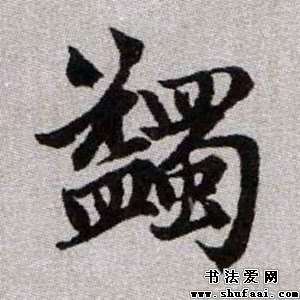 蠲
书法爱网
www.shufaai.com